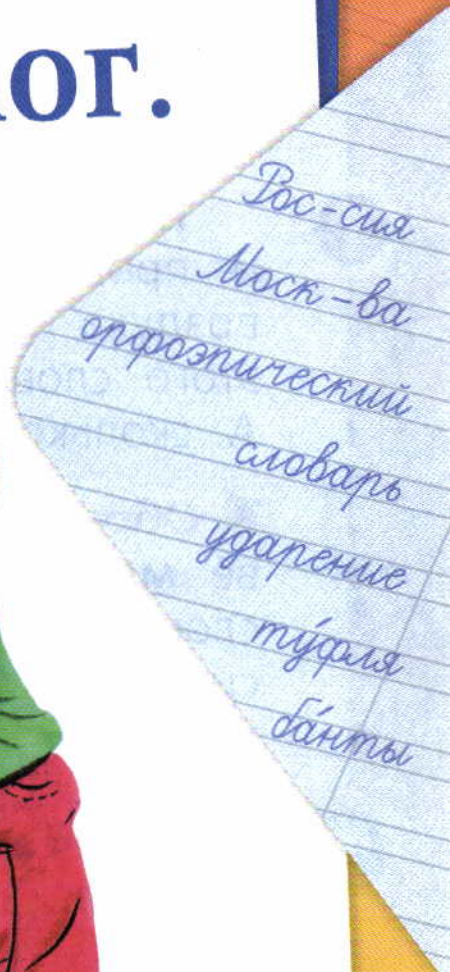 ог.
Рос-сия
Моск-ва
орфоэпический
словарь
ударение
ту́фля
ба́нты